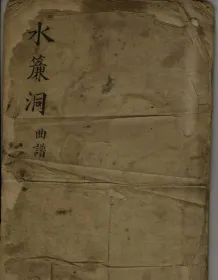 水簾洞曲譜